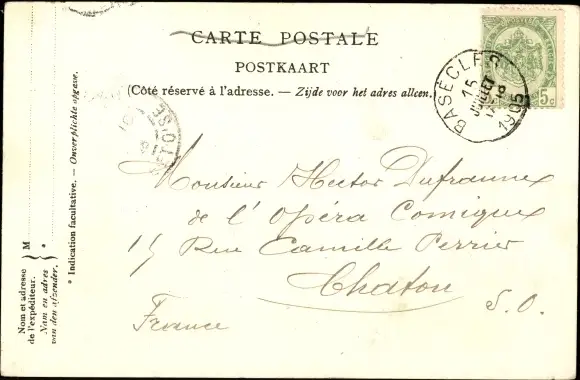 CARTE POSTALE
POSTKAART
(Côté réservé à l'adresse. — Zijde voor het adres alleen.)
BASÈCLES
15
JUILLET
1905
5c
Monsieur Hector Dufranne
de l'Opéra Comique
15 Rue Camille Perrier
Chatou
S. O.
France
* Indication facultative. — Onverplichte opgave.
M
*
Nom et adresse
de l'expéditeur.
Naam en adres
van den afzender.